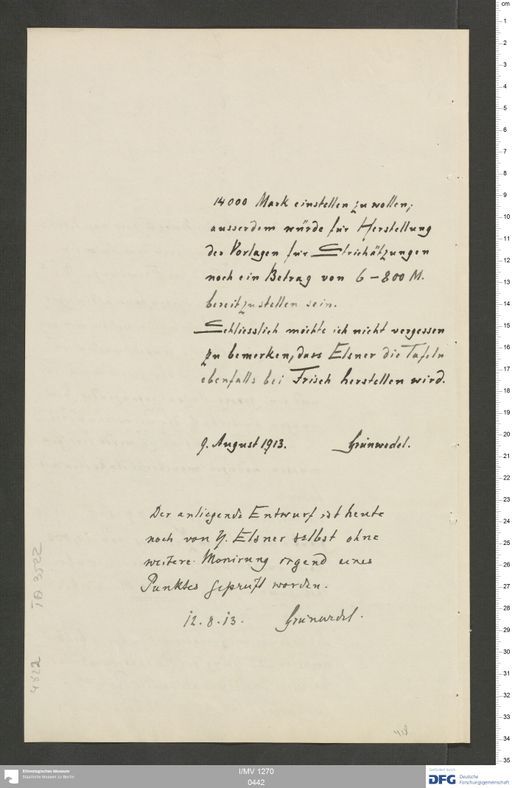 14000 Mark einstellen zu wollen;
ausserdem würde für Herstellung
der Vorlagen für Strichätzungen
noch ein Betrag von 6–800 M.
bereitzustellen sein.
Schliesslich möchte ich nicht vergessen
zu bemerken, dass Elsner die Tafeln
ebenfalls bei Frisch herstellen wird.
9. August 1913. Grünwedel.
Der anliegende Entwurf ist heute
noch von H. Elsner selbst ohne
weitere Monirung irgend eines
Punktes geprüft worden.
12.8.13. Grünwedel.
Ethnologisches Museum
Staatliche Museen zu Berlin
I/MV 1270
0442
DFG
Deutsche
Forschungsgemeinschaft